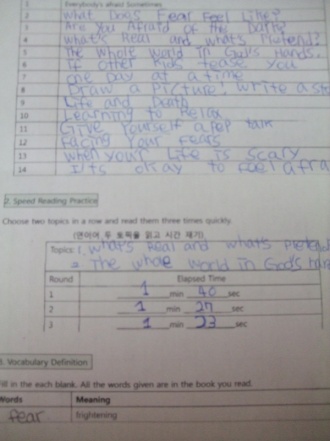 1 Everybody's afraid Sometimes
2 what Does Fear Feel Like?
3 Are You Afraid of the Dark?
4 what's Real and what's Pretend?
5 The whole world In God's Hands.
6 If other kids tease you
7 one Day at a time
8 Draw a Picture! write a sto
9 Life and Death
10 Learning to Relax
11 Give Yourself a Pep talk
12 Facing Your Fears
13 when your Life is Scary
14 It's okay to Feel afra
2. Speed Reading Practice
Choose two topics in a row and read them three times quickly.
(연이어 두 토픽을 읽고 시간 재기).
Topics: 1. what's Real and what's Pretend
The whole world in God's han
Round Elapsed Time
1 1 min 40 sec
2 1 min 27 sec
3 1 min 23 sec
3. Vocabulary Definition
Fill in the each blank. All the words given are in the book you read.
Words Meaning
fear frightening